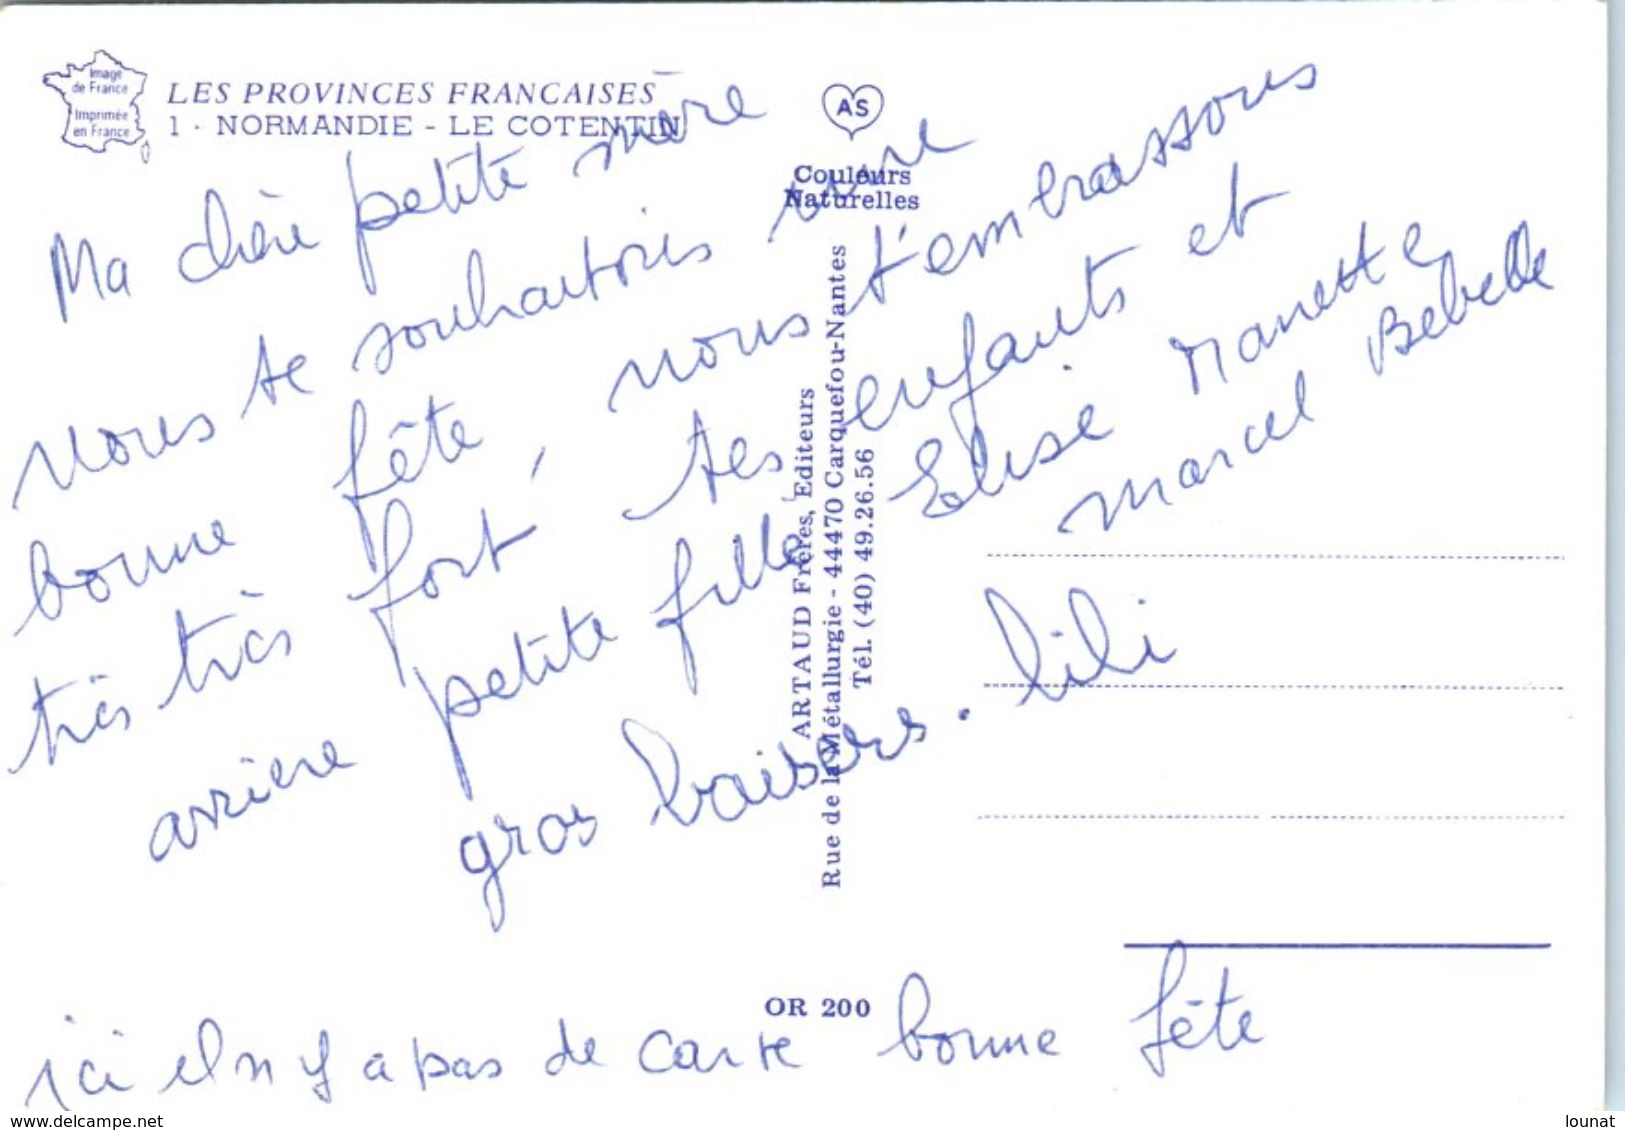 Image
de France
Imprimée
en France
LES PROVINCES FRANCAISES
1 - NORMANDIE - LE COTENTIN
AS
Couleurs
Naturelles
Ma chère petite mère
nous te souhaitons une
bonne fête, nous t'embrassons
très très fort, tes enfants et
arrière petite fille, Elise Manette
Marcel Bebelle
gros baisers. lili
ARTAUD Frères, Editeurs
Rue de la Métallurgie - 44470 Carquefou-Nantes
Tél. (40) 49.26.56
OR 200
ici il n y a pas de carte bonne fête
www.delcampe.net
lounat